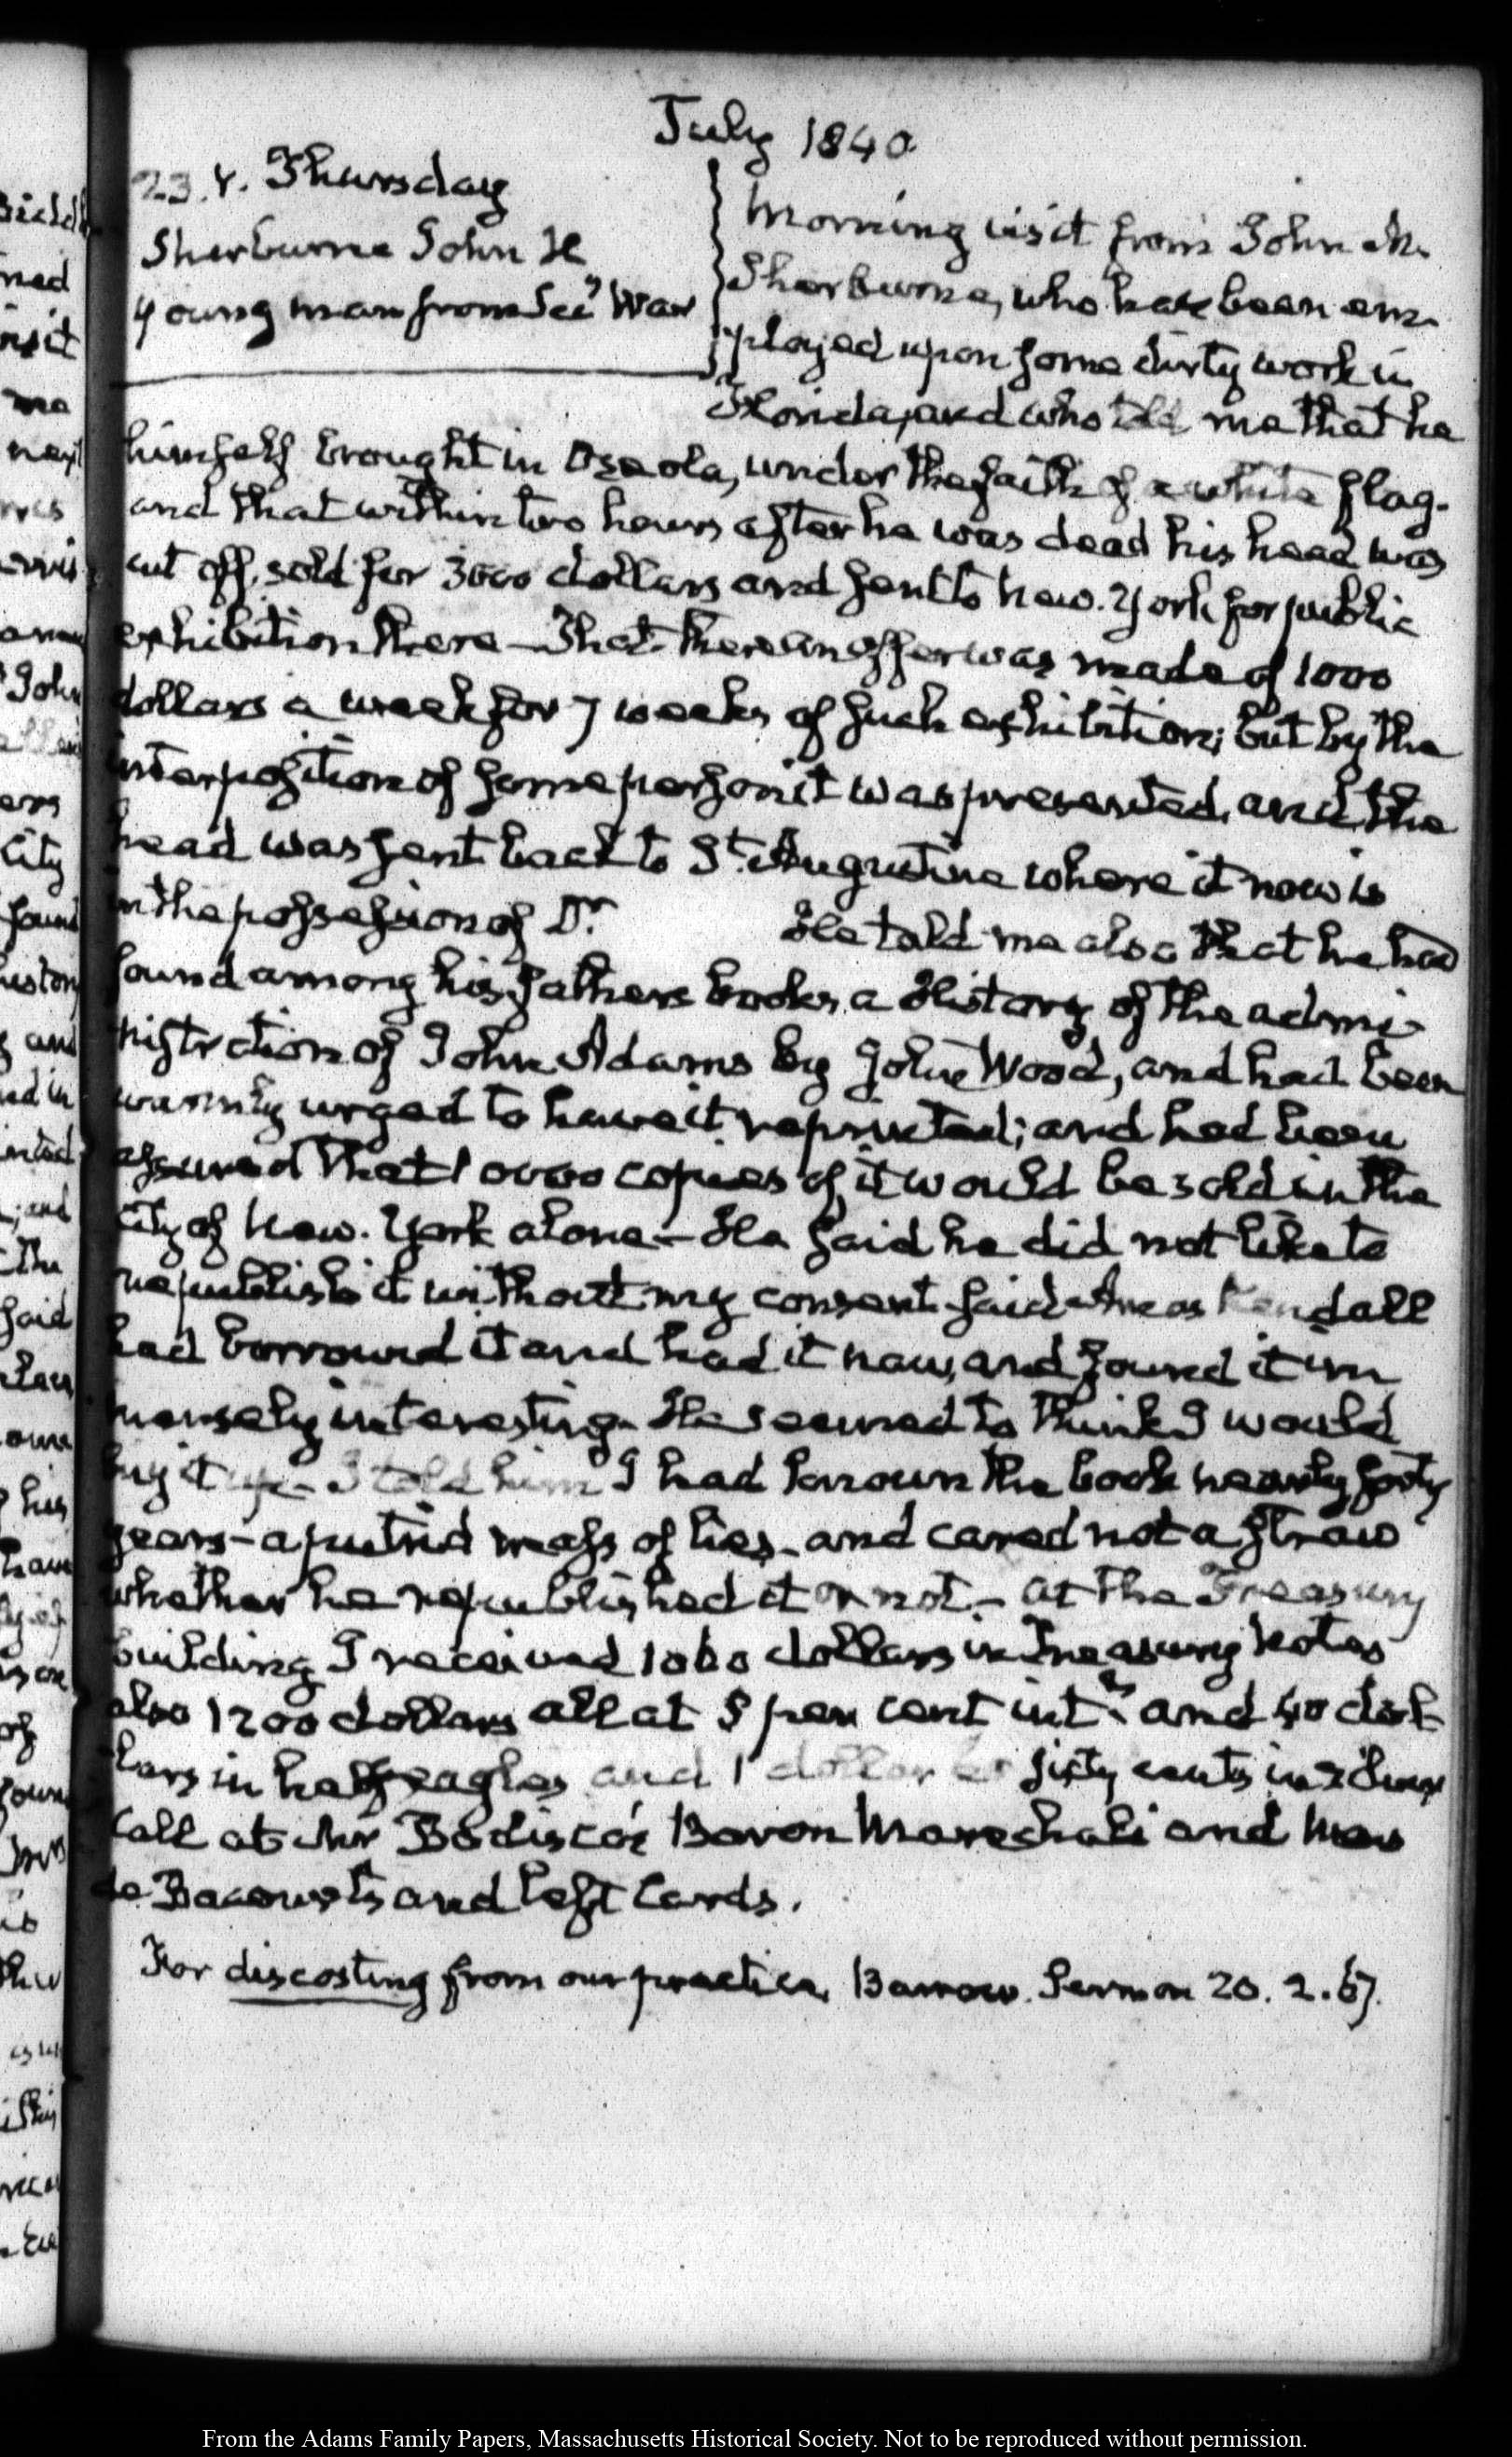 July 1840
23. V. Thursday
Sherburne John H
Young man from Secy War
Morning visit from John H.
Sherburne, who has been em-
ployed upon some dirty work in
Florida, and who told me that he
himself brought in Oseola, under the faith of a white flag.
and that within two hours after he was dead his head was
cut off, sold for 3000 dollars and sent to New. York for public
exhibition there — That there an offer was made of 1000
dollars a week for 7 weeks of such exhibition; but by the
interposition of some person it was prevented, and the
head was sent back to St. Augustine where it now is
in the possession of Dr. He told me also that he had
found among his father's books, a History of the admi-
nistration of John Adams by John Wood, and had been
warmly urged to have it reprinted; and had been
assured that 10000 copies of it would be sold in the
City of New. York alone — He said he did not like to
republish it without my consent. said Amos Kendall
had borrowed it and had it now, and found it im
mensely interesting. He seemed to think I would
buy it up — I told him I had known the book nearly forty
years — a putrid mass of lies — and cared not a straw
whether he republished it or not. — at the Treasury
building I received 1060 dollars in Treasury Notes
also 1200 dollars all at 5 per cent intt. and 40 dol-
lars in half eagles and 1 dollar sixty cents in silver
Call at Mr Bodisco's, Baron Mareshal's and Mr
de Bacourt's and left Cards.
For discosting from our practice, Barrow. Sermon 20. 2. 67.
From the Adams Family Papers, Massachusetts Historical Society. Not to be reproduced without permission.